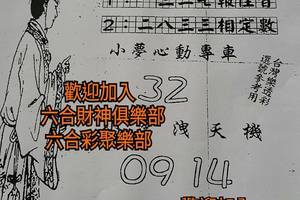 二:二八三三相定數
小夢心動專車
台灣樂透彩
選號參考用
歡迎加入
32
六合財神俱樂部
六合彩聚樂部
洩天機
09 14